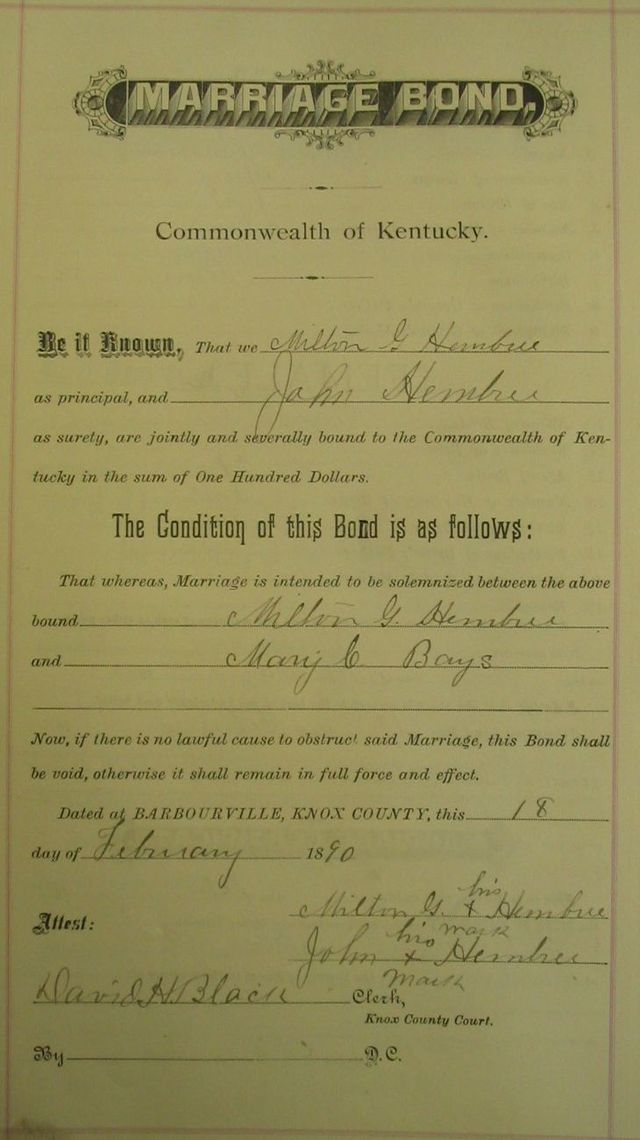 MARRIAGE BOND.
Commonwealth of Kentucky.
Be it Known, That we Milton G Hembree
as principal, and John Hembree
as surety, are jointly and severally bound to the Commonwealth of Ken-
tucky in the sum of One Hundred Dollars.
The Condition of this Bond is as follows:
That whereas, Marriage is intended to be solemnized between the above
bound Milton G. Hembree
and Mary C Bays
Now, if there is no lawful cause to obstruct said Marriage, this Bond shall
be void, otherwise it shall remain in full force and effect.
Dated at BARBOURVILLE, KNOX COUNTY, this 18
day of February 1890
his
Milton G. x Hembree
mark
Attest:
his
John x Hembree
mark
David H. Black Clerk,
Knox County Court.
By D.C.